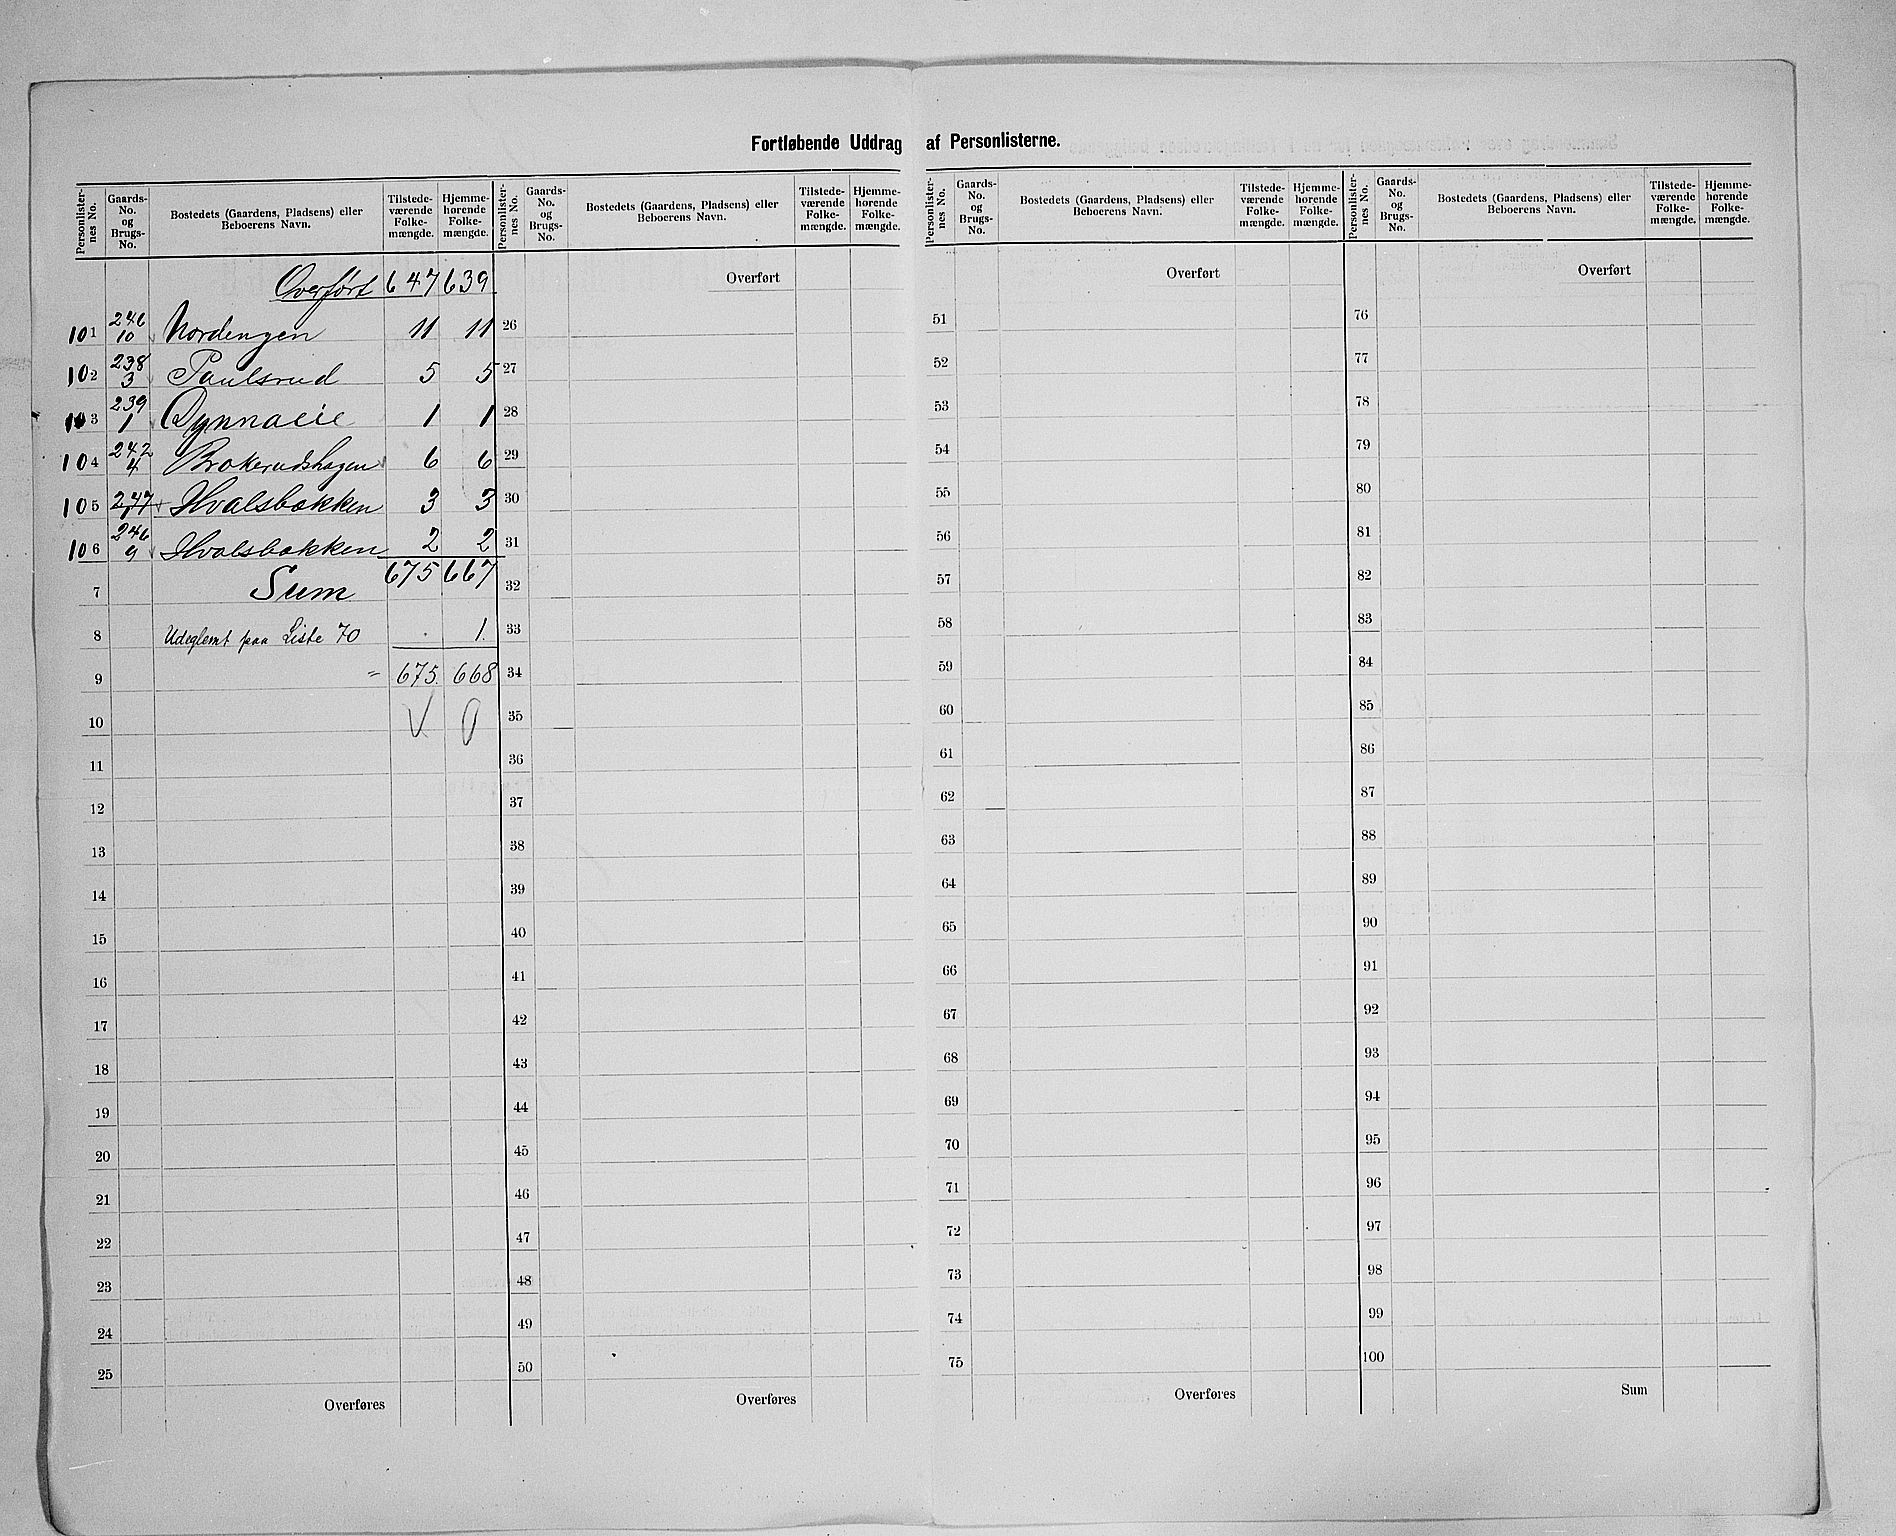 Fortløbende Uddrag af Personlisterne.
Personlister-nes No. Gaards-No. og Brugs-No. Bostedets (Gaardens, Pladsens) eller Beboerens Navn. Tilstede-værende Folke-mængde. Hjemme-hørende Folke-mængde.
Overført 647 639
101 246/10 Nordengen 11 11
102 238/3 Paulsrud 5 5
103 239/1 Dynnaeie 1 1
104 242/4 Brokerudshagen 6 6
105 247/1 Hvalsbakken 3 3
106 246/9 Hvalsbakken 2 2
7 Sum 675 667
8 Udeglemt paa Liste 70 . 1.
9 " 675. 668
10 V 0
11
12
13
14
15
16
17
18
19
20
21
22
23
24
25
Overføres
Personlister-nes No. Gaards-No. og Brugs-No. Bostedets (Gaardens, Pladsens) eller Beboerens Navn. Tilstede-værende Folke-mængde. Hjemme-hørende Folke-mængde.
Overført
26
27
28
29
30
31
32
33
34
35
36
37
38
39
40
41
42
43
44
45
46
47
48
49
50
Overføres
Personlister-nes No. Gaards-No. og Brugs-No. Bostedets (Gaardens, Pladsens) eller Beboerens Navn. Tilstede-værende Folke-mængde. Hjemme-hørende Folke-mængde.
Overført
51
52
53
54
55
56
57
58
59
60
61
62
63
64
65
66
67
68
69
70
71
72
73
74
75
Overføres
Personlister-nes No. Gaards-No. og Brugs-No. Bostedets (Gaardens, Pladsens) eller Beboerens Navn. Tilstede-værende Folke-mængde. Hjemme-hørende Folke-mængde.
Overført
76
77
78
79
80
81
82
83
84
85
86
87
88
89
90
91
92
93
94
95
96
97
98
99
100
Sum